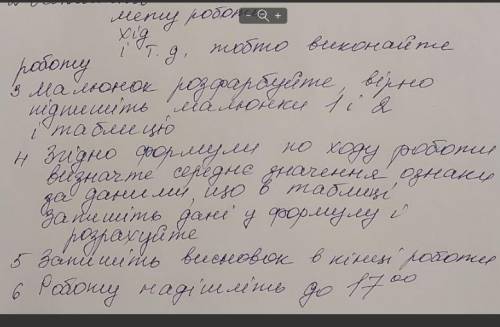 мету роботи
хід
і т.д, тобто виконайте
роботу
3 Малюнок розфарбуйте, вірно
підпишіть малюнки 1 і 2
і таблицю
4 Згідно формули по ходу роботи
визначте середнє значення ознаки
за даними, що в таблиці
Запишіть дані у формулу і
розрахуйте
5 Запишіть висновок в кінці роботи
6 Роботу надішліть до 17⁰⁰